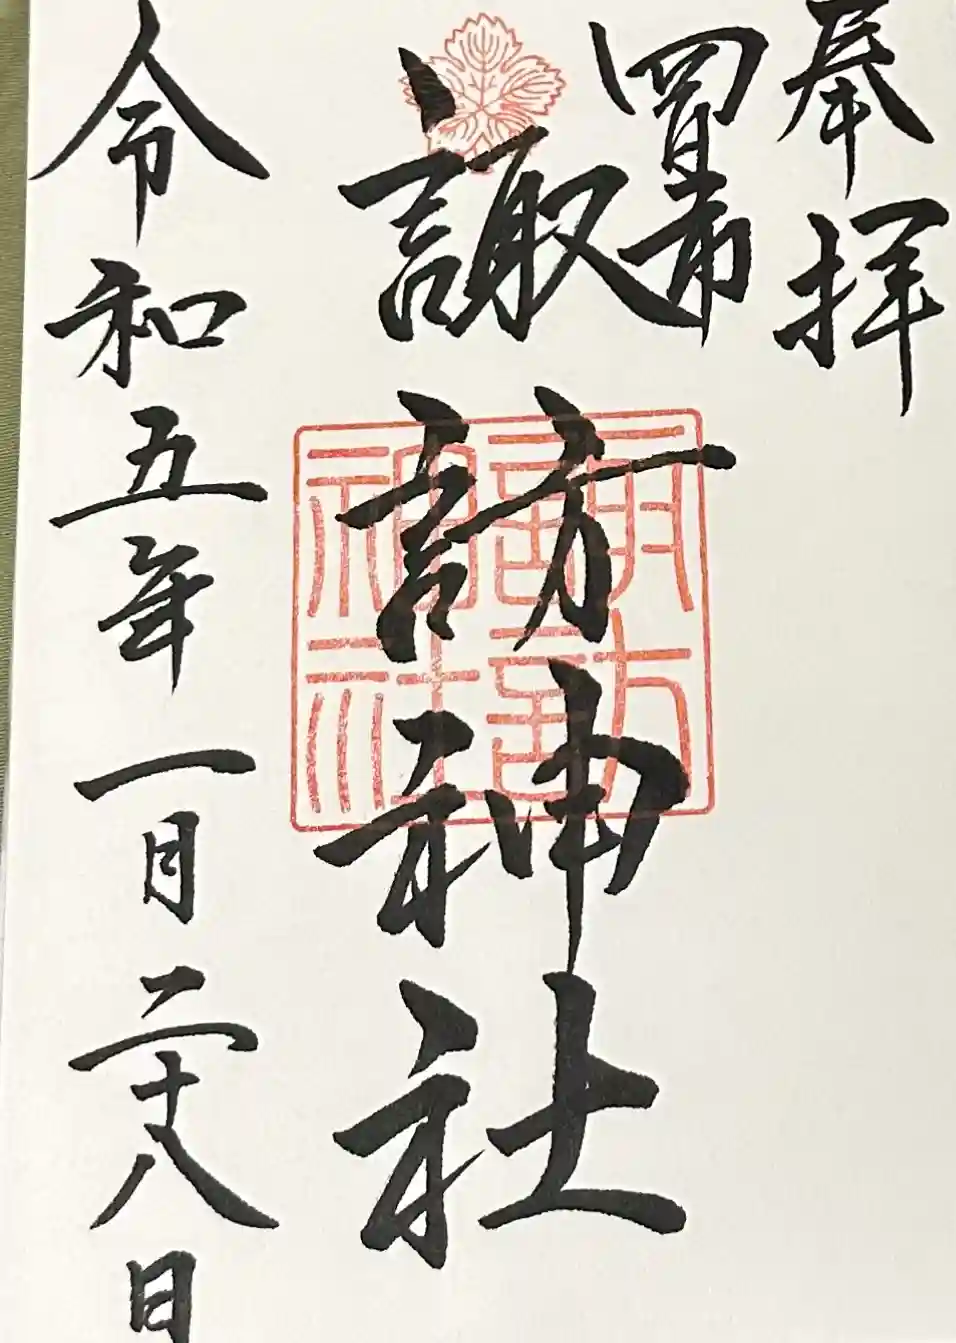 奉拝
四日市
諏訪神社
諏訪
神社
令和五年一月二十八日